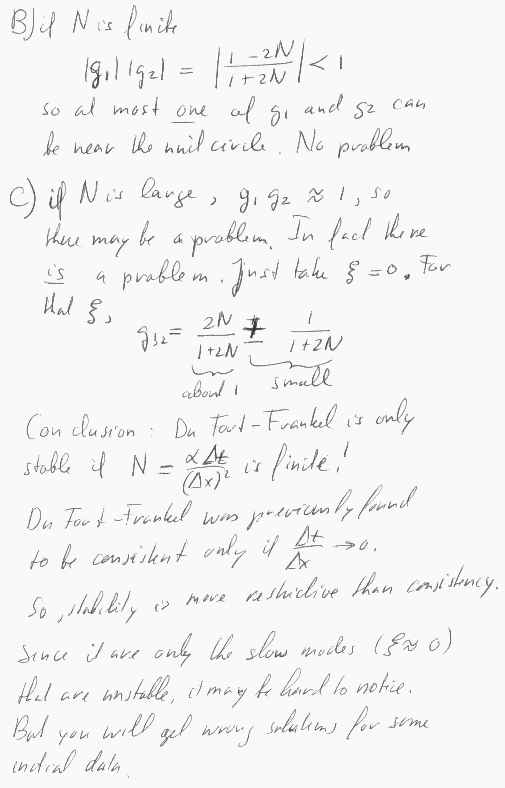 B) if N is finite
|g₁| |g₂| = |(1-2N)/(1+2N)| < 1
so at most one of g₁ and g₂ can
be near the unit circle. No problem
C) if N is large, g₁ g₂ ≈ 1, so
there may be a problem. In fact there
is a problem. Just take ξ = 0. For
that ξ,
g₁,₂ = 2N/(1+2N) ± 1/(1+2N)
about 1 small
Conclusion: Du Fort-Frankel is only
stable if N = αΔt/(Δx)² is finite!
Du Fort-Frankel was previously found
to be consistent only if Δt/Δx → 0.
So, stability is more restrictive than consistency.
Since it are only the slow modes (ξ ≈ 0)
that are unstable, it may be hard to notice.
But you will get wrong solutions for some
initial data.